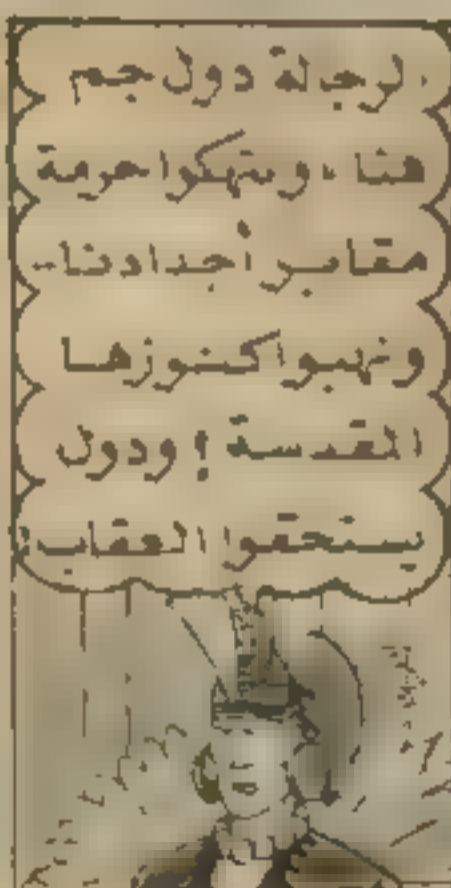 الرجالة دول جم
هنا ، وينتهكوا حرمة
مقابر أجدادنا..
ونهبوا كنوزها
المقدسة ! ودول
يستحقوا العقاب!